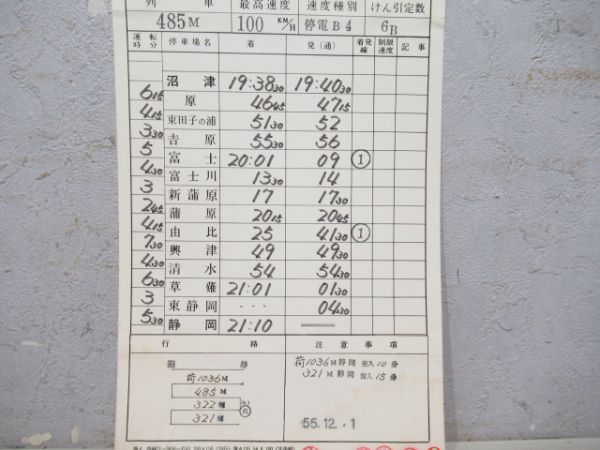 列 車 最高速度 速度種別 けん引定数
485M 100 KM/H 停電B4 6B
運転時分 停車場名 着 発(通) 着発線 制限速度 記事
沼津 19:38 30 19:40 30
6 15
原 46 45 47 15
4 15
東田子の浦 51 30 52
3 30
吉原 55 30 56
5
富士 20:01 09 ①
4 30
富士川 13 30 14
3
新蒲原 17 17 30
2 45
蒲原 20 15 20 45
4 15
由比 25 41 30 ①
7 30
興津 49 49 30
4 30
清水 54 54 30
6 30
草薙 21:01 01 30
3
東静岡 ... 04 30
5 30
静岡 21:10 —
行 路 注意事項
荷1036M
485M
322M
321M
荷1036M 静岡 10分
321M 静岡 15分
55.12.-1